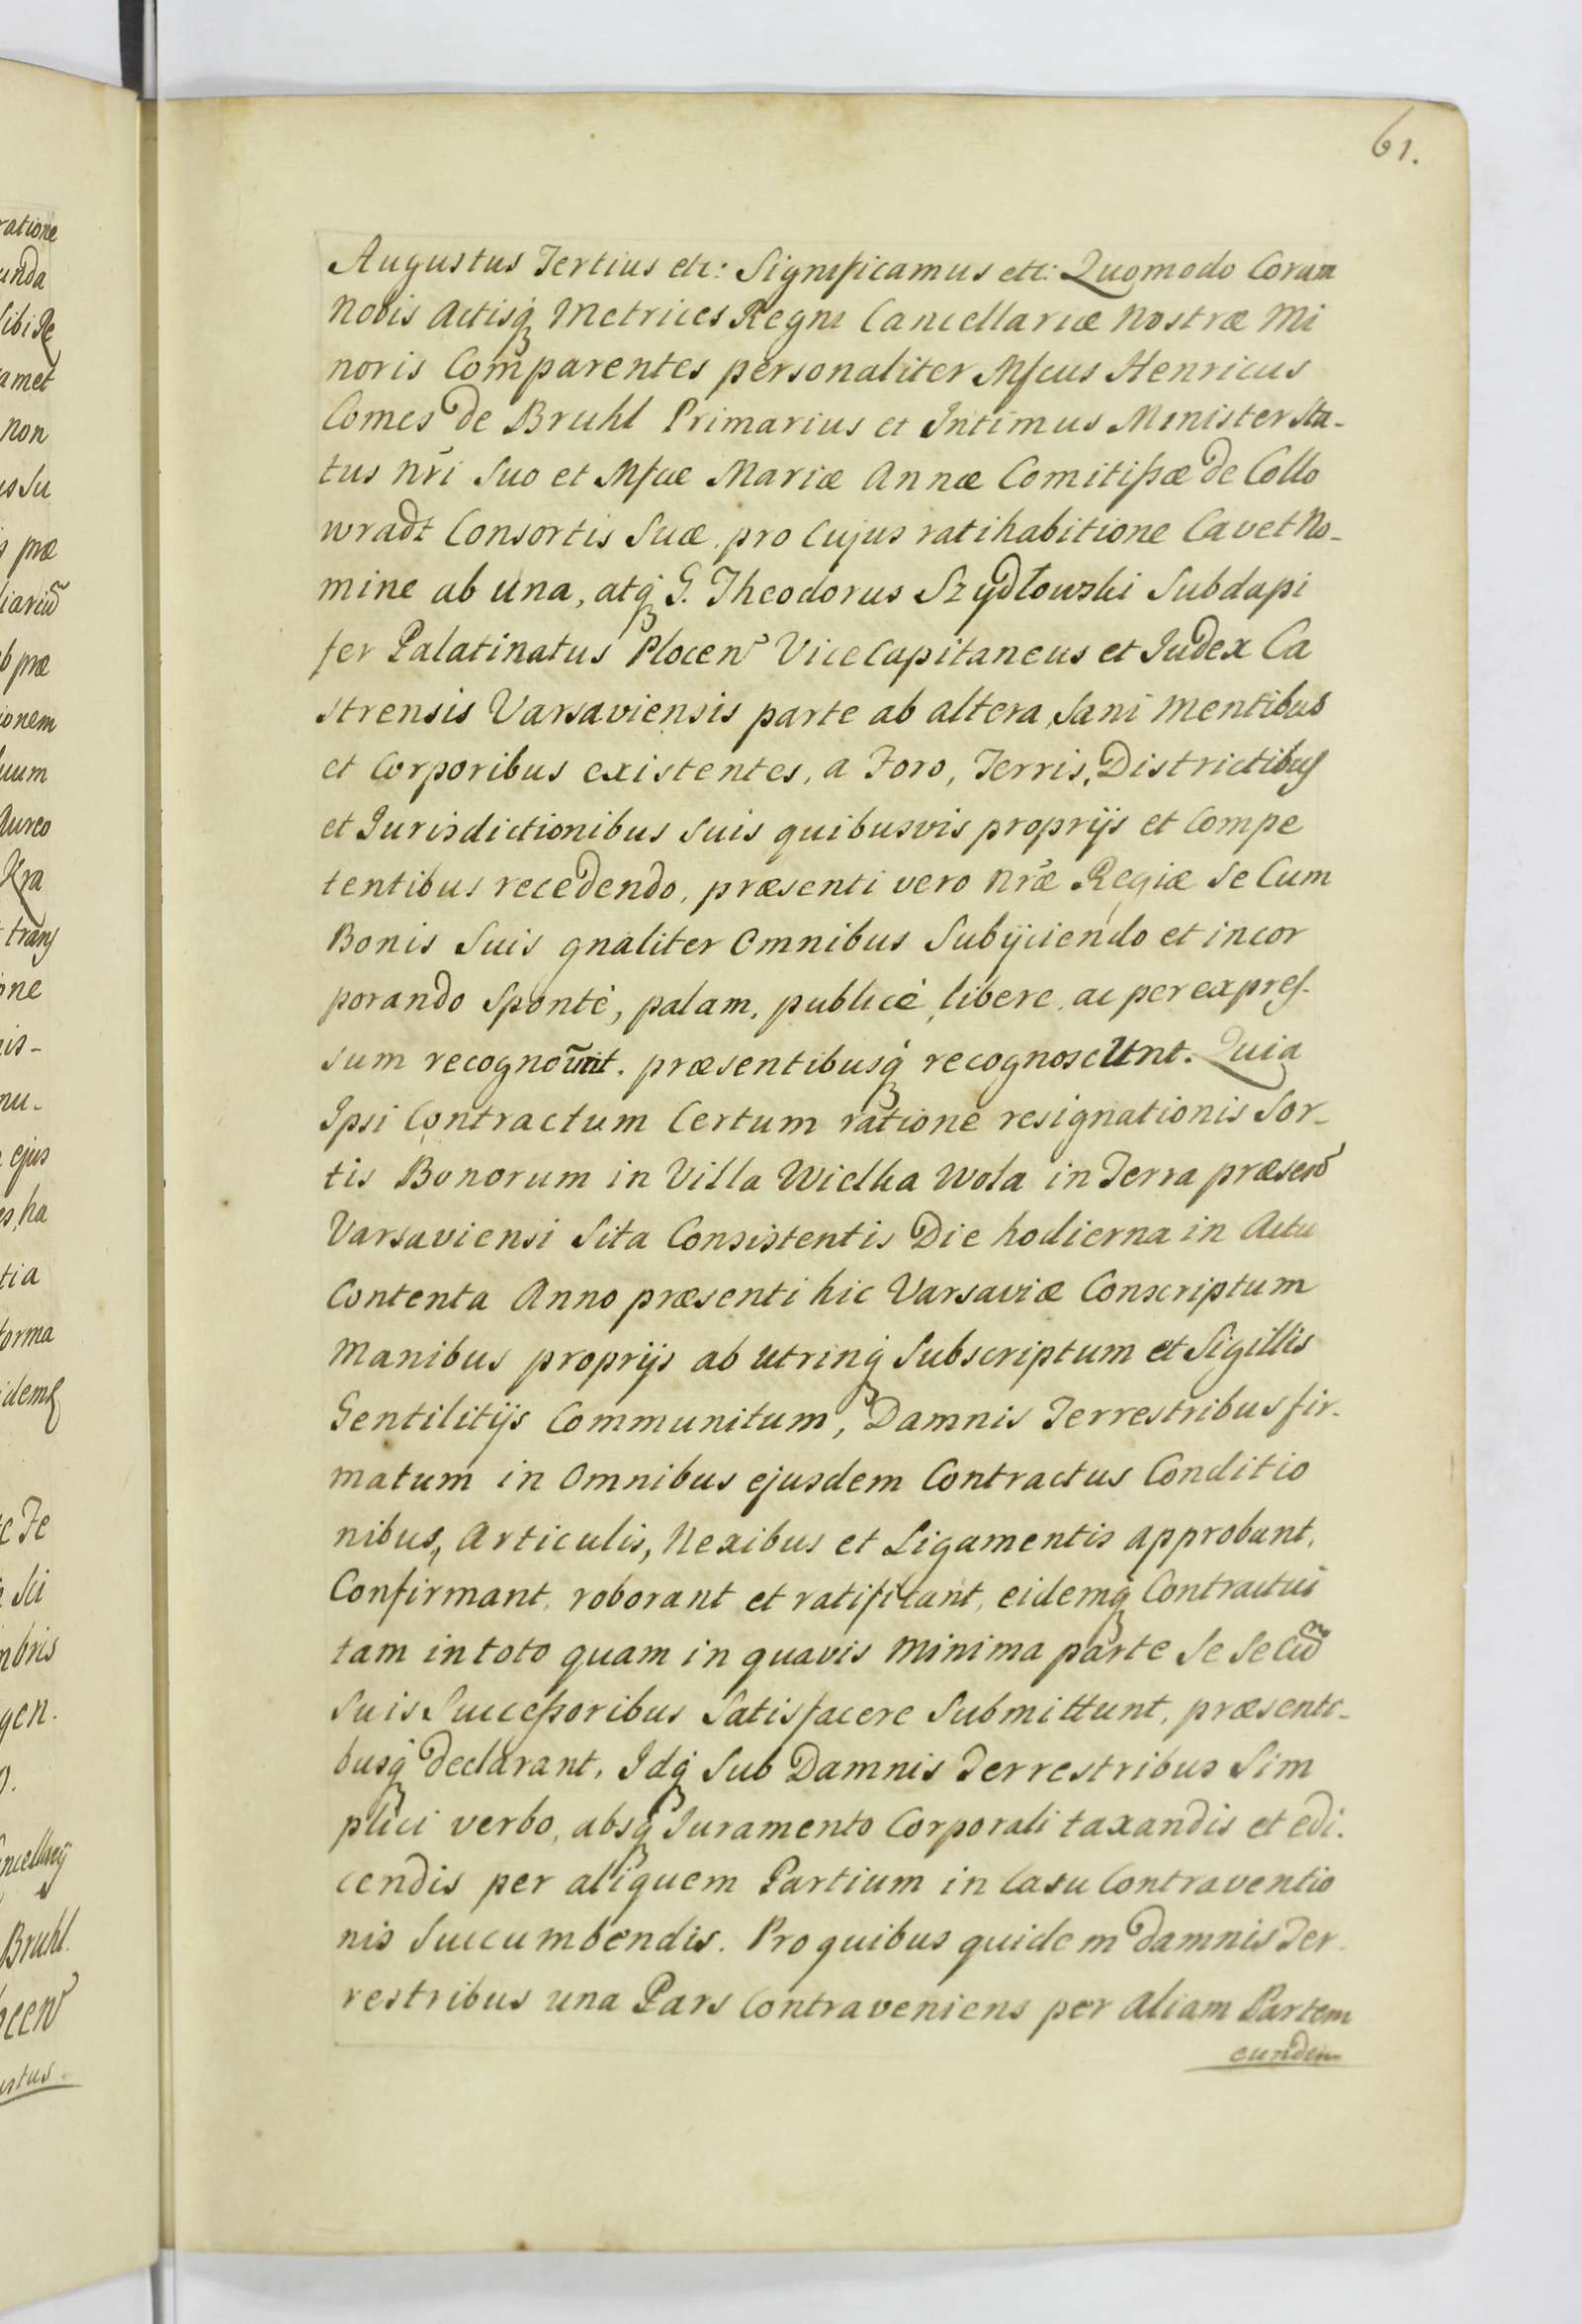 61.
Augustus Tertius etc: Significamus etc: Quomodo Coram
Nobis Actisq̃ Metrices Regni Cancellariæ Nostræ Mi
noris Comparentes personaliter Mfcus Henricus
Comes de Bruhl Primarius et Intimus Minister Sta-
tus nr̃i Suo et Mfcæ Mariæ Annæ Comitißæ de Collo
wradt Consortis Suæ, pro Cujus ratihabitione Cavet No-
mine ab una, atq̃ G. Theodorus Szydłowski Subdapi
fer Palatinatus Plocen̄ Vice Capitaneus et Judex Ca
strensis Varsaviensis parte ab altera, Sani Mentibus
et Corporibus existentes, a Foro, Terris, Districtibus
et Jurisdictionibus suis quibusvis proprijs et Compe
tentibus recedendo, præsenti vero nr̃æ Regiæ Se Cum
Bonis Suis gnaliter Omnibus Subijciendo et incor
porando Spontè, palam, publicè, libere, ac per expres-
sum recognoūnt. præsentibusq̃ recognoscUnt. Quia
Ipsi Contractum Certum ratione resignationis Sor-
tis Bonorum in Villa Wielka Wola in Terra præsen̄
Varsaviensi Sita Consistentis Die hodierna in Actu
Contenta Anno præsenti hic Varsaviæ Conscriptum
Manibus proprijs ab utrinq̃ Subscriptum et Sigillis
Gentilitijs Communitum, Damnis Terrestribus fir-
matum in Omnibus ejusdem Contractus Conditio
nibus, Articulis, Nexibus et Ligamentis approbant,
Confirmant, roborant et ratificant, eidemq̃ Contractui
tam in toto quam in quavis Minima parte Se Se Cũ
Suis Succeßoribus Satisfacere Submittunt, præsenti-
busq̃ declarant, Idq̃ Sub Damnis Terrestribus Sim
plici verbo, absq̃ Juramento Corporali taxandis et edi-
cendis per aliquem Partium in Casu Contraventio
nis Succumbendis. Pro quibus quidem damnis Ter-
restribus una Pars Contraveniens per Aliam Partem
eundem
ratione
unda
Sibi Re
amet
non
us Su
præ
liariũ
b præ
ionem
uum
Aureo
Kra
trans
one
nis-
nu-
ejus
es, ha
tia
forma
idemq̃
Te
Sci
mbris
gen.
Bruhl.